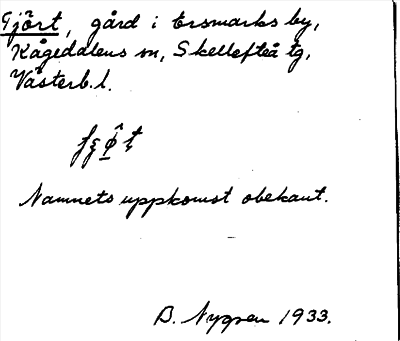 Gjört, gård i Ersmarks by,
Kågedalens sn, Skellefteå tg,
Västerb. l.
Namnets uppkomst obekant.
B. Nygren 1933.